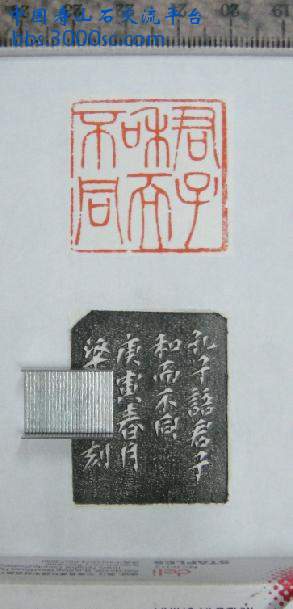 中国寿山石交流平台
bbs.3000sc.com
20
19
君子
和而
不同
孔子語君子
和而不同
庚寅春月
刻
deli
STAPLES